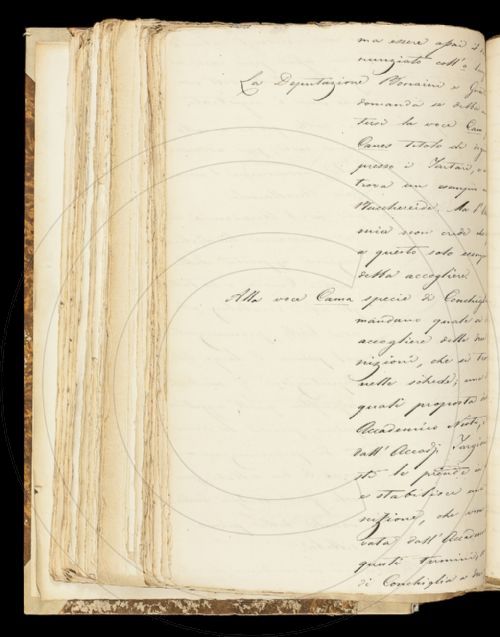 ma essere assai
nunziato coll'o
La Deputazione Bonaini e
domanda se debba
tersi la voce Cam
Canes titolo di
presso i Tartari,
trova un esempio
Bucchereide. Ma l'
mia non crede
a questo solo esemp
debba accogliere.
Alla voce Cama specie di Conchig
mandano quale
accogliere delle due
nizioni, che si tro
nelle schede; una
quali proposta
Accademico Nesti,
dall' Accad. Targioni
sti le prende
e stabilisce
nizione, che
vata dall' Accadem
questi termini,
di Conchiglia a due